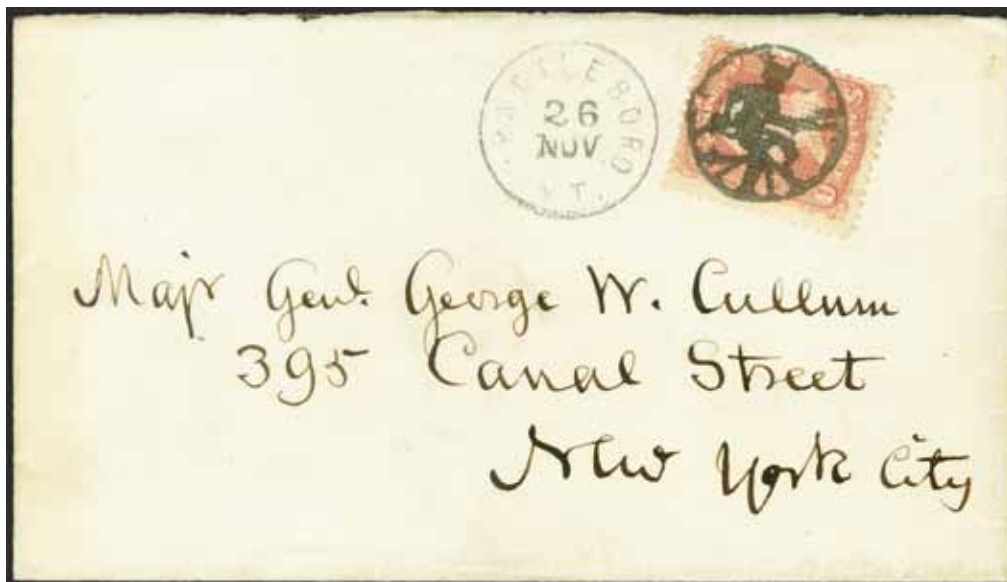 BRATTLEBORO
26
NOV
VT.
Majr Genl. George W. Cullum
395 Canal Street
New York City